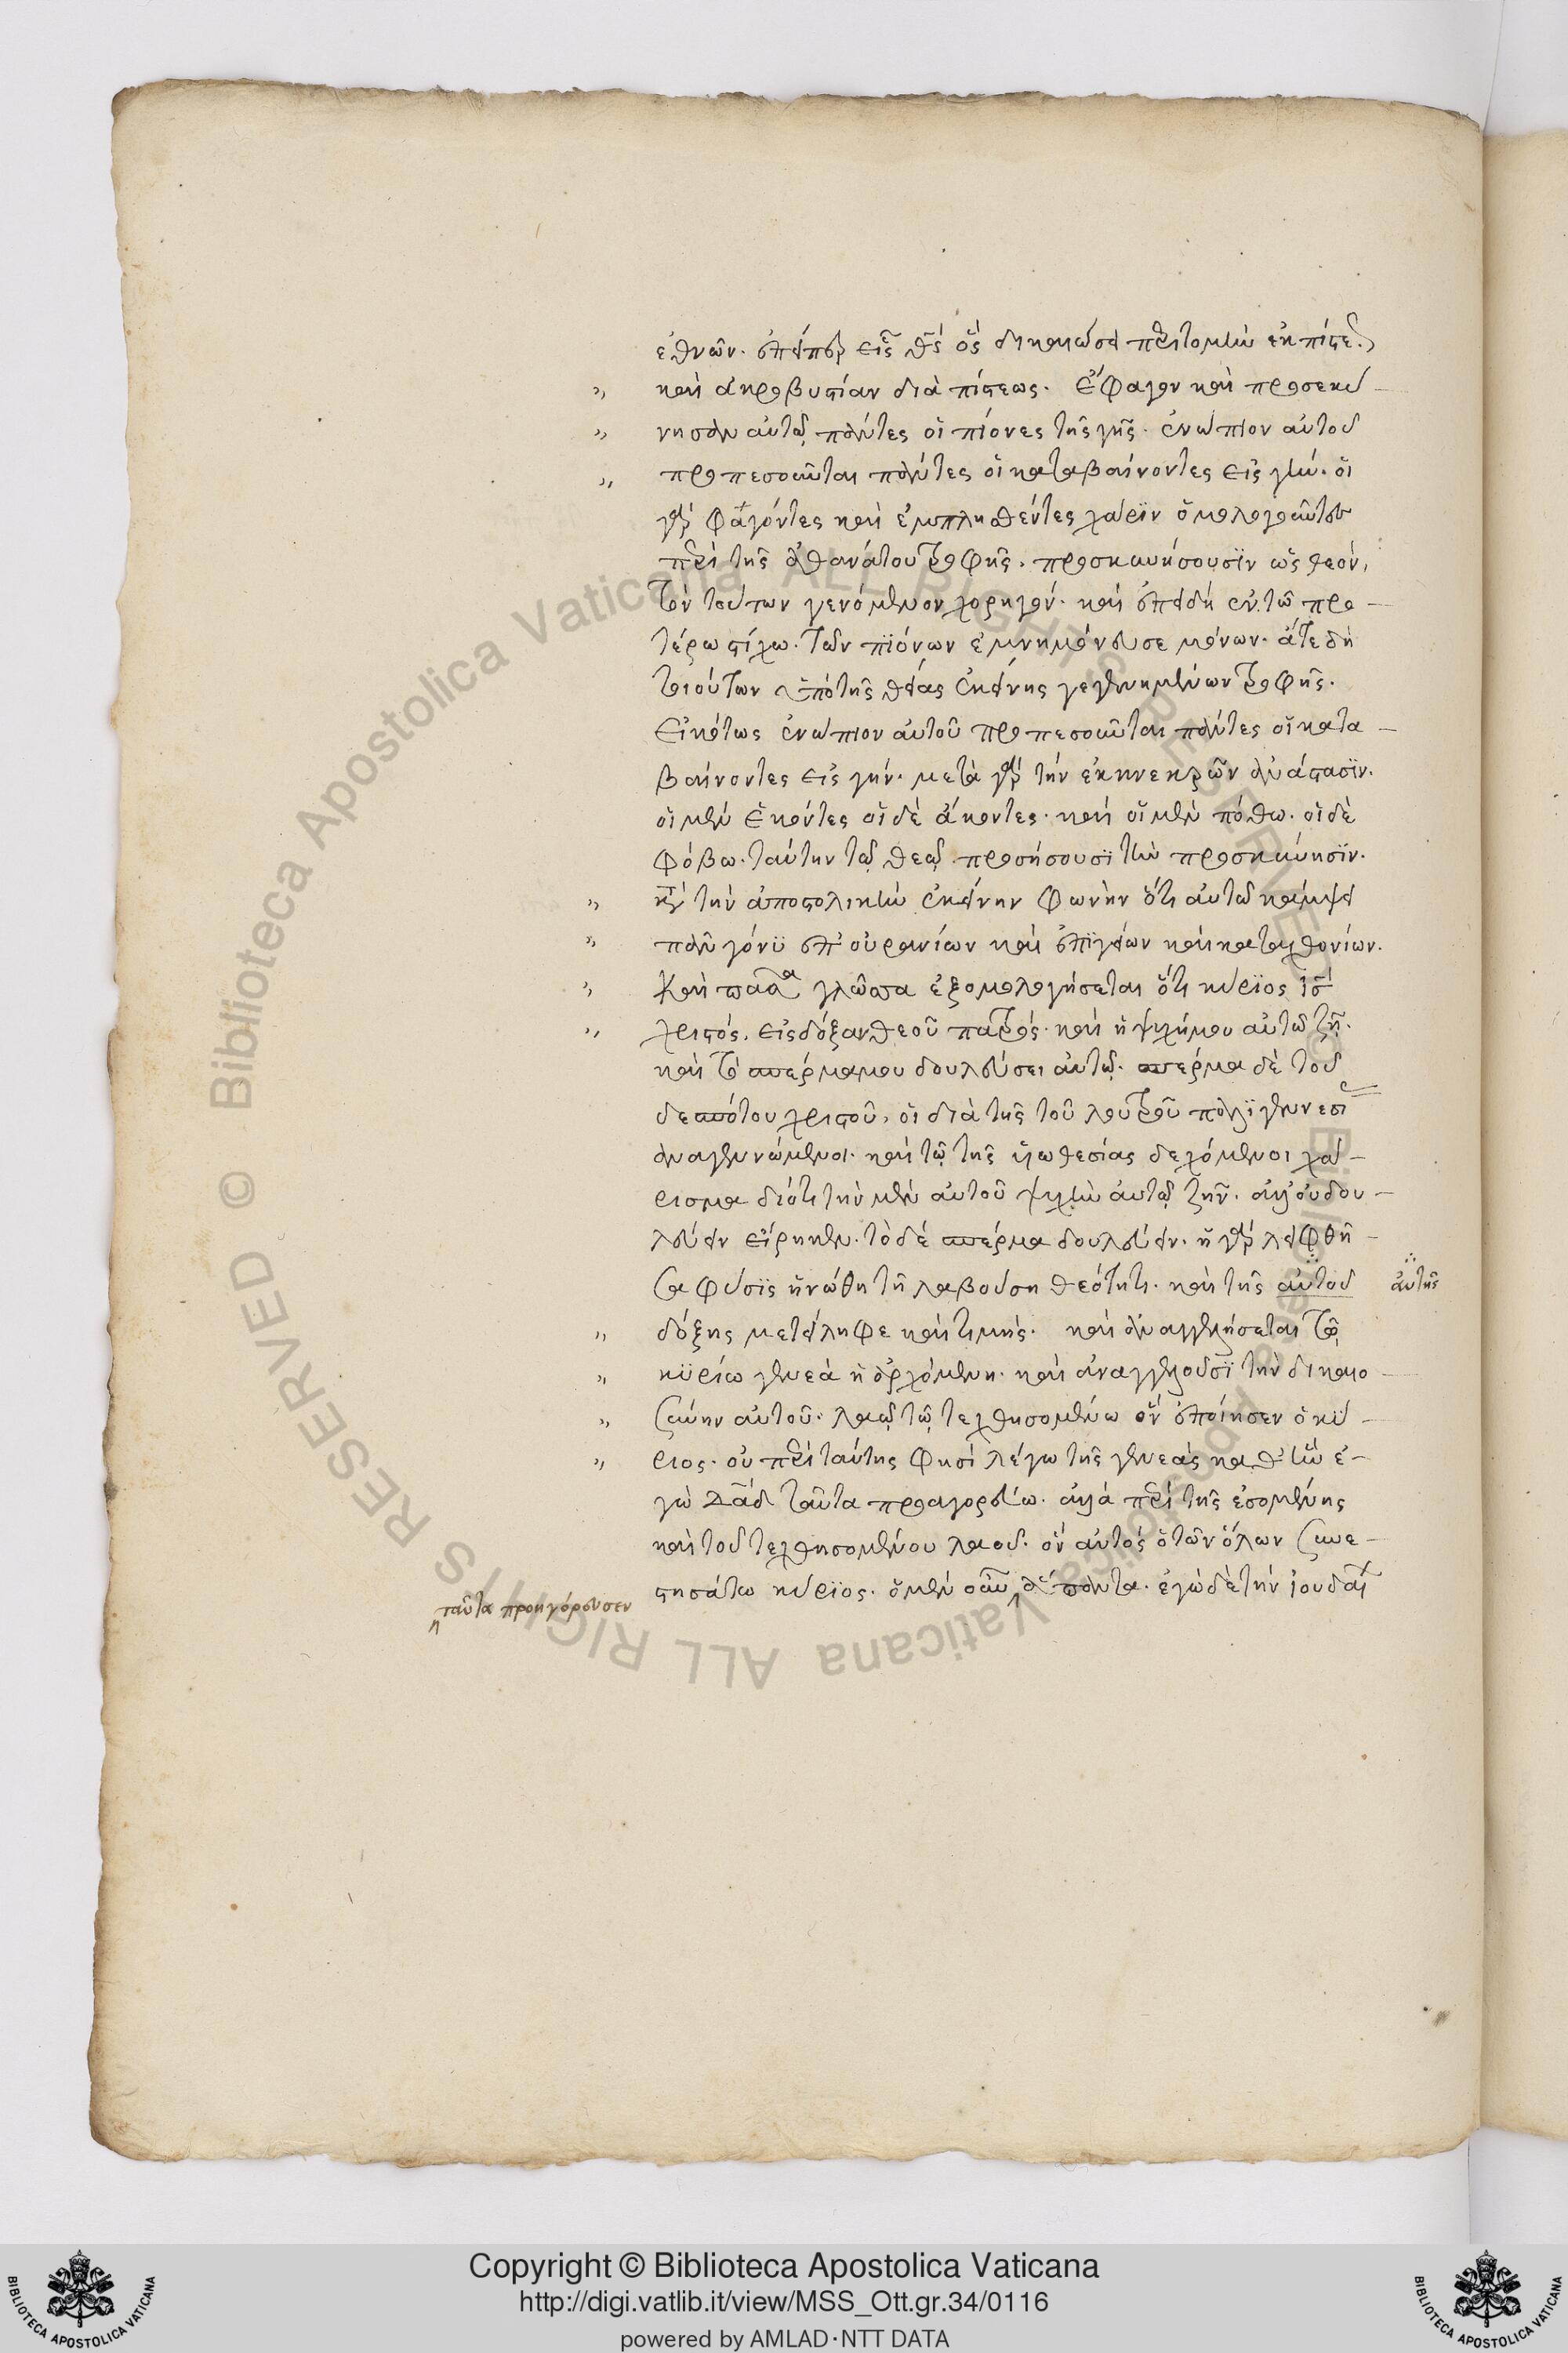 ἐθνῶν. ἐπείπερ εἷς θς ὃς δικαιώσει περιτομὴν ἐκ πίστεως
„ καὶ ἀκροβυστίαν διὰ πίστεως. ἔφαγον καὶ προσεκύ-
„ νησαν αὐτῷ πάντες οἱ πίονες τῆς γῆς. ἐνώπιον αὐτοῦ
„ προπεσοῦνται πάντες οἱ καταβαίνοντες εἰς γῆν. οἱ
γὰρ φαγόντες καὶ ἐμπληθέντες χάριν ὁμολογοῦντες
περὶ τῆς ἀθανάτου τροφῆς. προσκυνήσουσϊν ὡς θεὸν,
τὸν τούτων γενόμενον χορηγόν. καὶ ἐπειδὴ ἐν τῷ προ-
τέρω στίχω. τῶν πϊόνων ἐμνημόνευσε μόνων. ἅτε δὴ
τοιούτων ἀπὸ τῆς θείας ἐκείνης γεγενημένων τροφῆς.
εἰκότως ἐνώπιον αὐτοῦ προπεσοῦνται πάντες οἱ κατα-
βαίνοντες εἰς γῆν. μετὰ γὰρ τὴν ἐκ νεκρῶν ἀνάστασϊν.
οἱ μὲν ἑκόντες οἱ δὲ ἄκοντες. καὶ οἱ μὲν πόθω. οἱ δὲ
φόβω. ταύτην τῷ θεῷ προσήσουσϊ τὴν προσκύνησϊν.
„ κατὰ τὴν ἀποστολικὴν ἐκείνην φωνὴν ὅτι αὐτῶ κάμψει
„ πᾶν γόνϋ ἐπ' οὐρανίων καὶ ἐπϊγείων καὶ καταχθονίων.
„ Καὶ πᾶσα γλῶσσα ἐξομολογήσεται ὅτι κύρϊος ις
„ χριστός, εἰς δόξαν θεοῦ πατρός. καὶ ἡ ψυχή μου αὐτῷ ζῇ.
καὶ τὸ σπέρμα μου δουλεύσει αὐτῷ. σπέρμα δὲ τοῦ
δεσπότου χριστοῦ, οἱ διὰ τῆς τοῦ λουτροῦ παλϊγγενεσί
ἀναγεννώμενοι. καὶ τῷ τῆς υἱοθεσίας δεχόμενοι χά-
ρισμα διότι τὴν μὲν αὐτοῦ ψυχὴν αὐτῷ ζῆν. ἀλλ' οὐ δου-
λεύειν εἴρηκεν. τὸ δὲ σπέρμα δουλεύειν. ἡ γὰρ ληφθεῖ-
σα φύσϊς ἡνώθη τῇ λαβούση θεότητι. καὶ τῆς αὐτοῦ ἀυτῆς
„ δόξης μετείληφε καὶ τιμῆς. καὶ ἀναγγελήσεται τῷ
„ κϋρίω γενεὰ ἡ ἐρχόμενη. καὶ ἀναγγελοῦσϊ τὴν δικαιο-
„ σύνην αὐτοῦ. λαῷ τῷ τεχθησομένω ὃν ἐποίησεν ὁ κύ-
„ ριος. οὐ περὶ ταύτης φησὶ λέγω τῆς γενεᾶς καθ' ἣν ἐ-
γὼ δᾶδ ταῦτα προαγορεύω. ἀλλὰ περὶ τῆς ἐσομένης
καὶ τοῦ τεχθησομένου λαοῦ. ὃν αὐτὸς ὁ τῶν ὅλων συνε-
στησάτω κύρϊος. ὁ μὲν οὖν δᾶδ πάντα. ἐγὼ δὲ τὴν ἰουδαΐ
ταῦτα προηγόρευσεν